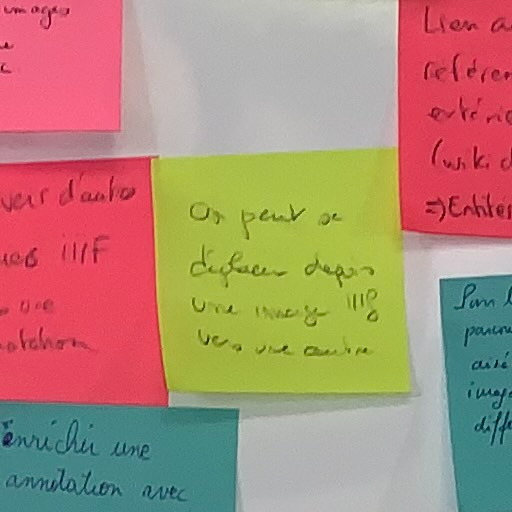 images
Lien a
référen
extérie
(wiki d
=> Entités
vers d'autres
ues IIIF
une
annotation
On peut se
déplacer depuis
une image IIIF
vers une autre
Pour l
parcou
aisé
image
diffé
enrichir une
annotation avec